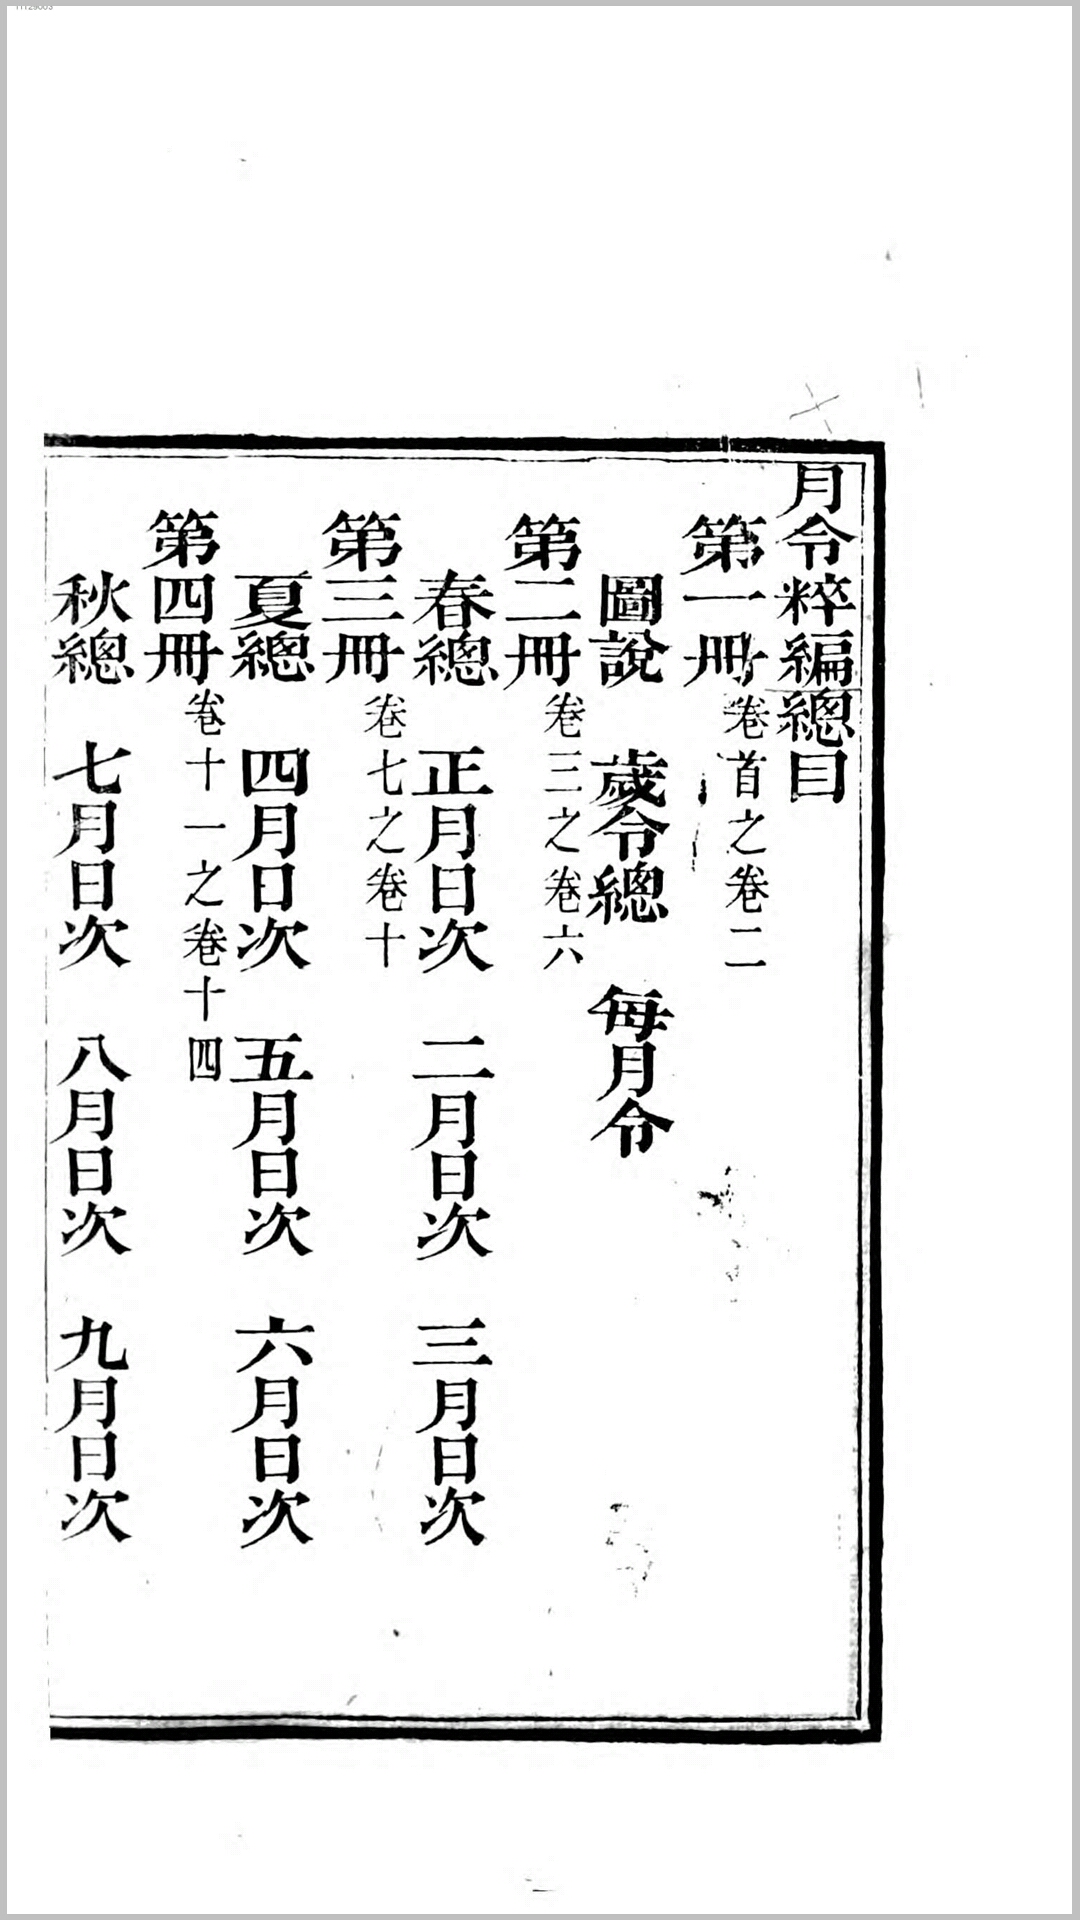 月令粹編總目
第一冊卷首之卷二
圖說　歲令總　每月令
第二冊卷三之卷六
春總　正月日次　二月日次　三月日次
第三冊卷七之卷十
夏總　四月日次　五月日次　六月日次
第四冊卷十一之卷十四
秋總　七月日次　八月日次　九月日次